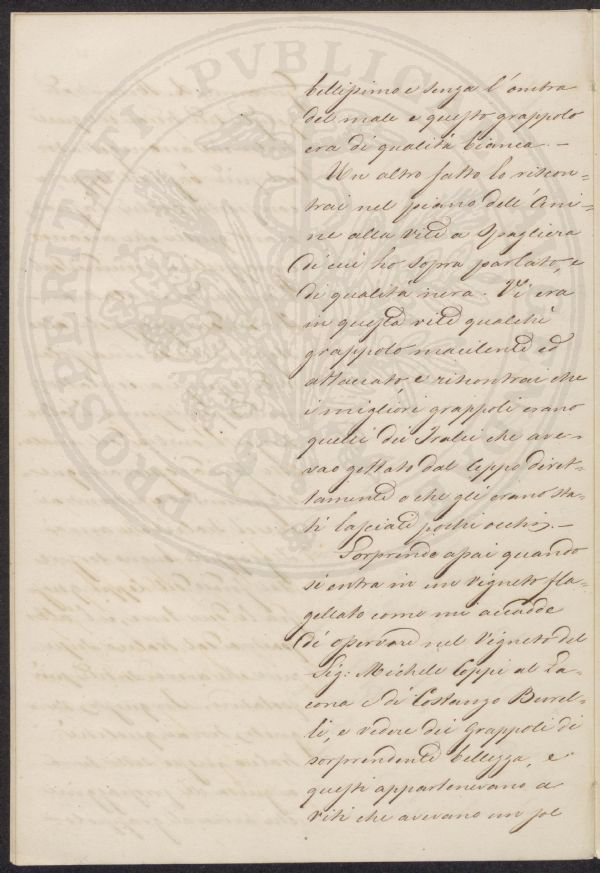 bellissimo e senza l'ombra
del male e questo grappolo
era di qualità bianca. –
Un altro fatto lo riscon=
trai nel piano dell'Ani=
ne alla vite a spagliera
di cui ho sopra parlato, e
di qualità nera. Vi era
in questa vite qualche
grappolo macilente ed
attaccato, e riscontrai che
i migliori grappoli erano
quelli dei Tralci che ave=
vao gettato dal ceppo diret=
tamente o che gli erano sta=
ti lasciati pochi occhi. –
Sorprende assai quando
si entra in un vigneto fla=
gellato come mi accadde
di osservare nel Vigneto del
Sig: Michele Coppi al La=
cona e di Costanzo Burel=
li, e vedere dei Grappoli di
sorprendente bellezza, e
questi appartenevano a
viti che avevano un sol
PROSPERITATI PVBLICAE